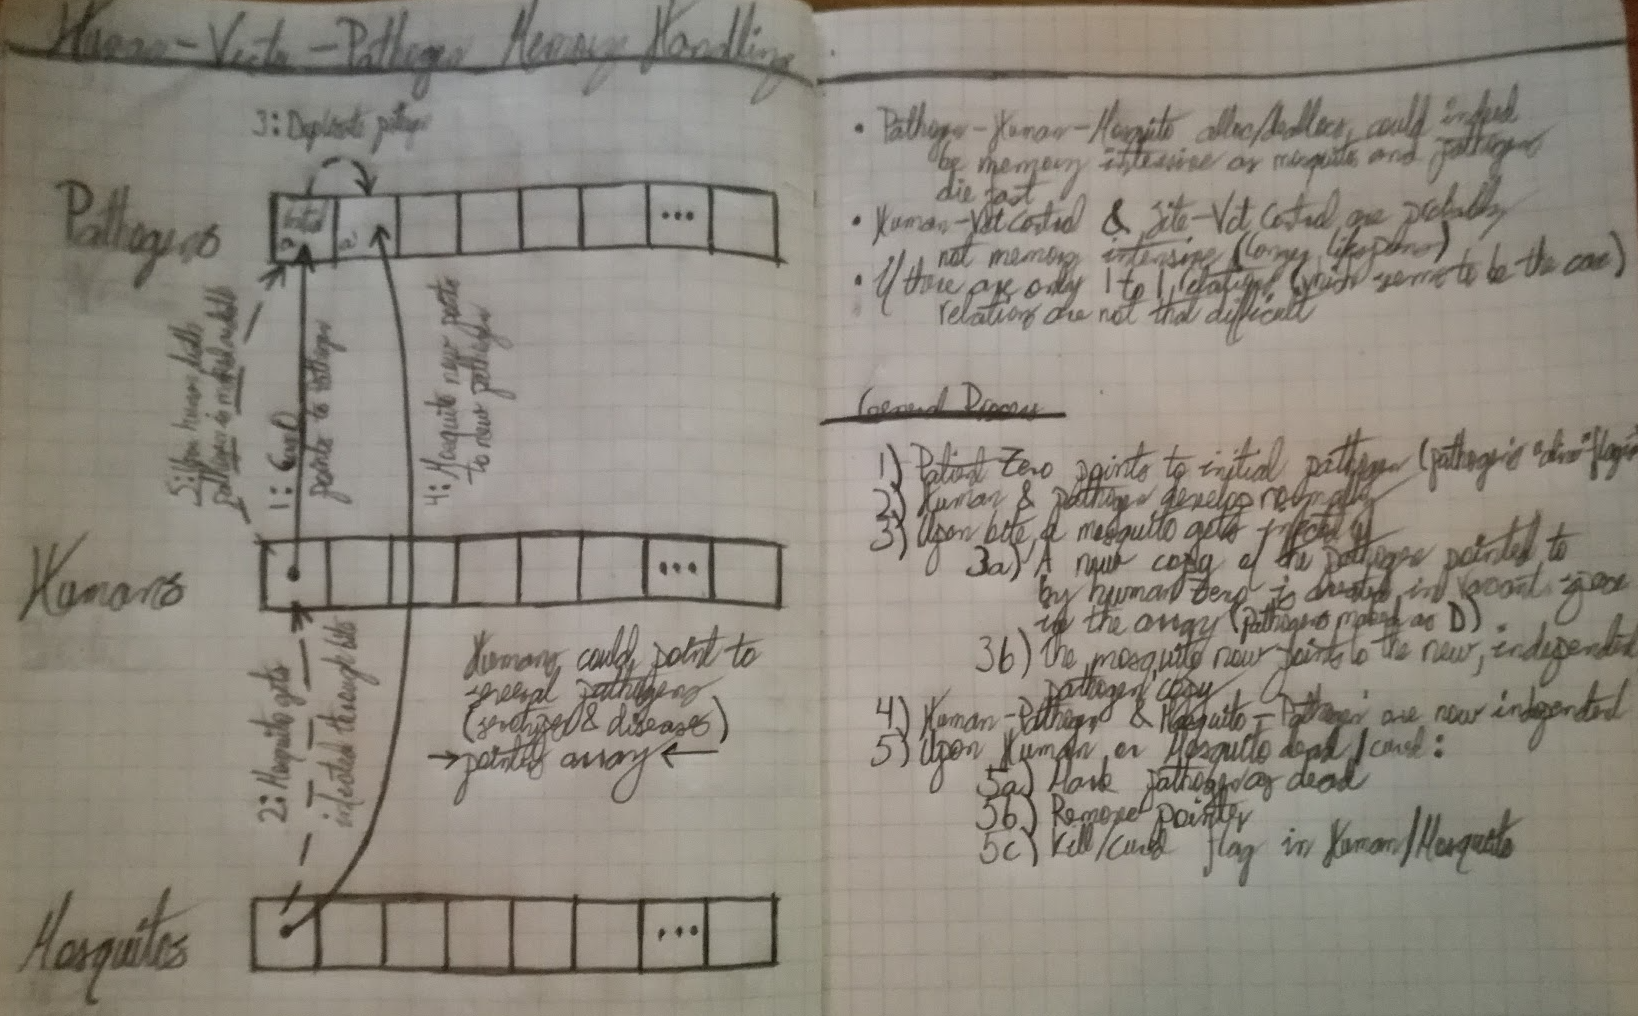 Human-Vector-Pathogen Memory Handling
3: Duplicate pathogen
Pathogens
Initial
...
5: Upon human death
pathogen is marked
1: Case 0
points to pathogen
4: Mosquito now points
to new pathogen
Humans
...
2: Mosquito gets
infected through bite
Humans could point to
several pathogens
(serotypes & diseases)
→ pointer array ←
Mosquitos
...
• Pathogen-Human-Mosquito alloc/deallocs, could indeed
be memory intensive as mosquitos and pathogens
die fast
• Human-Vct Control & Site-Vct Control are probably
not memory intensive
• If there are only 1 to 1 relations (which seems to be the case)
relations are not that difficult
General Process
1) Patient Zero points to initial pathogen (pathogen's "alive" flag
2) Human & pathogen develop normally
3) Upon bite, a mosquito gets infected
3a) A new copy of the pathogen pointed to
by human zero is created in vacant space
in the array (pathogens marked as D)
3b) The mosquito now points to the new, independent
pathogen copy
4) Human-Pathogen & Mosquito-Pathogen are now independent
5) Upon Human or Mosquito dead/cured:
5a) Mark pathogen as dead
5b) Remove pointer
5c) Kill/cured flag in Human/Mosquito